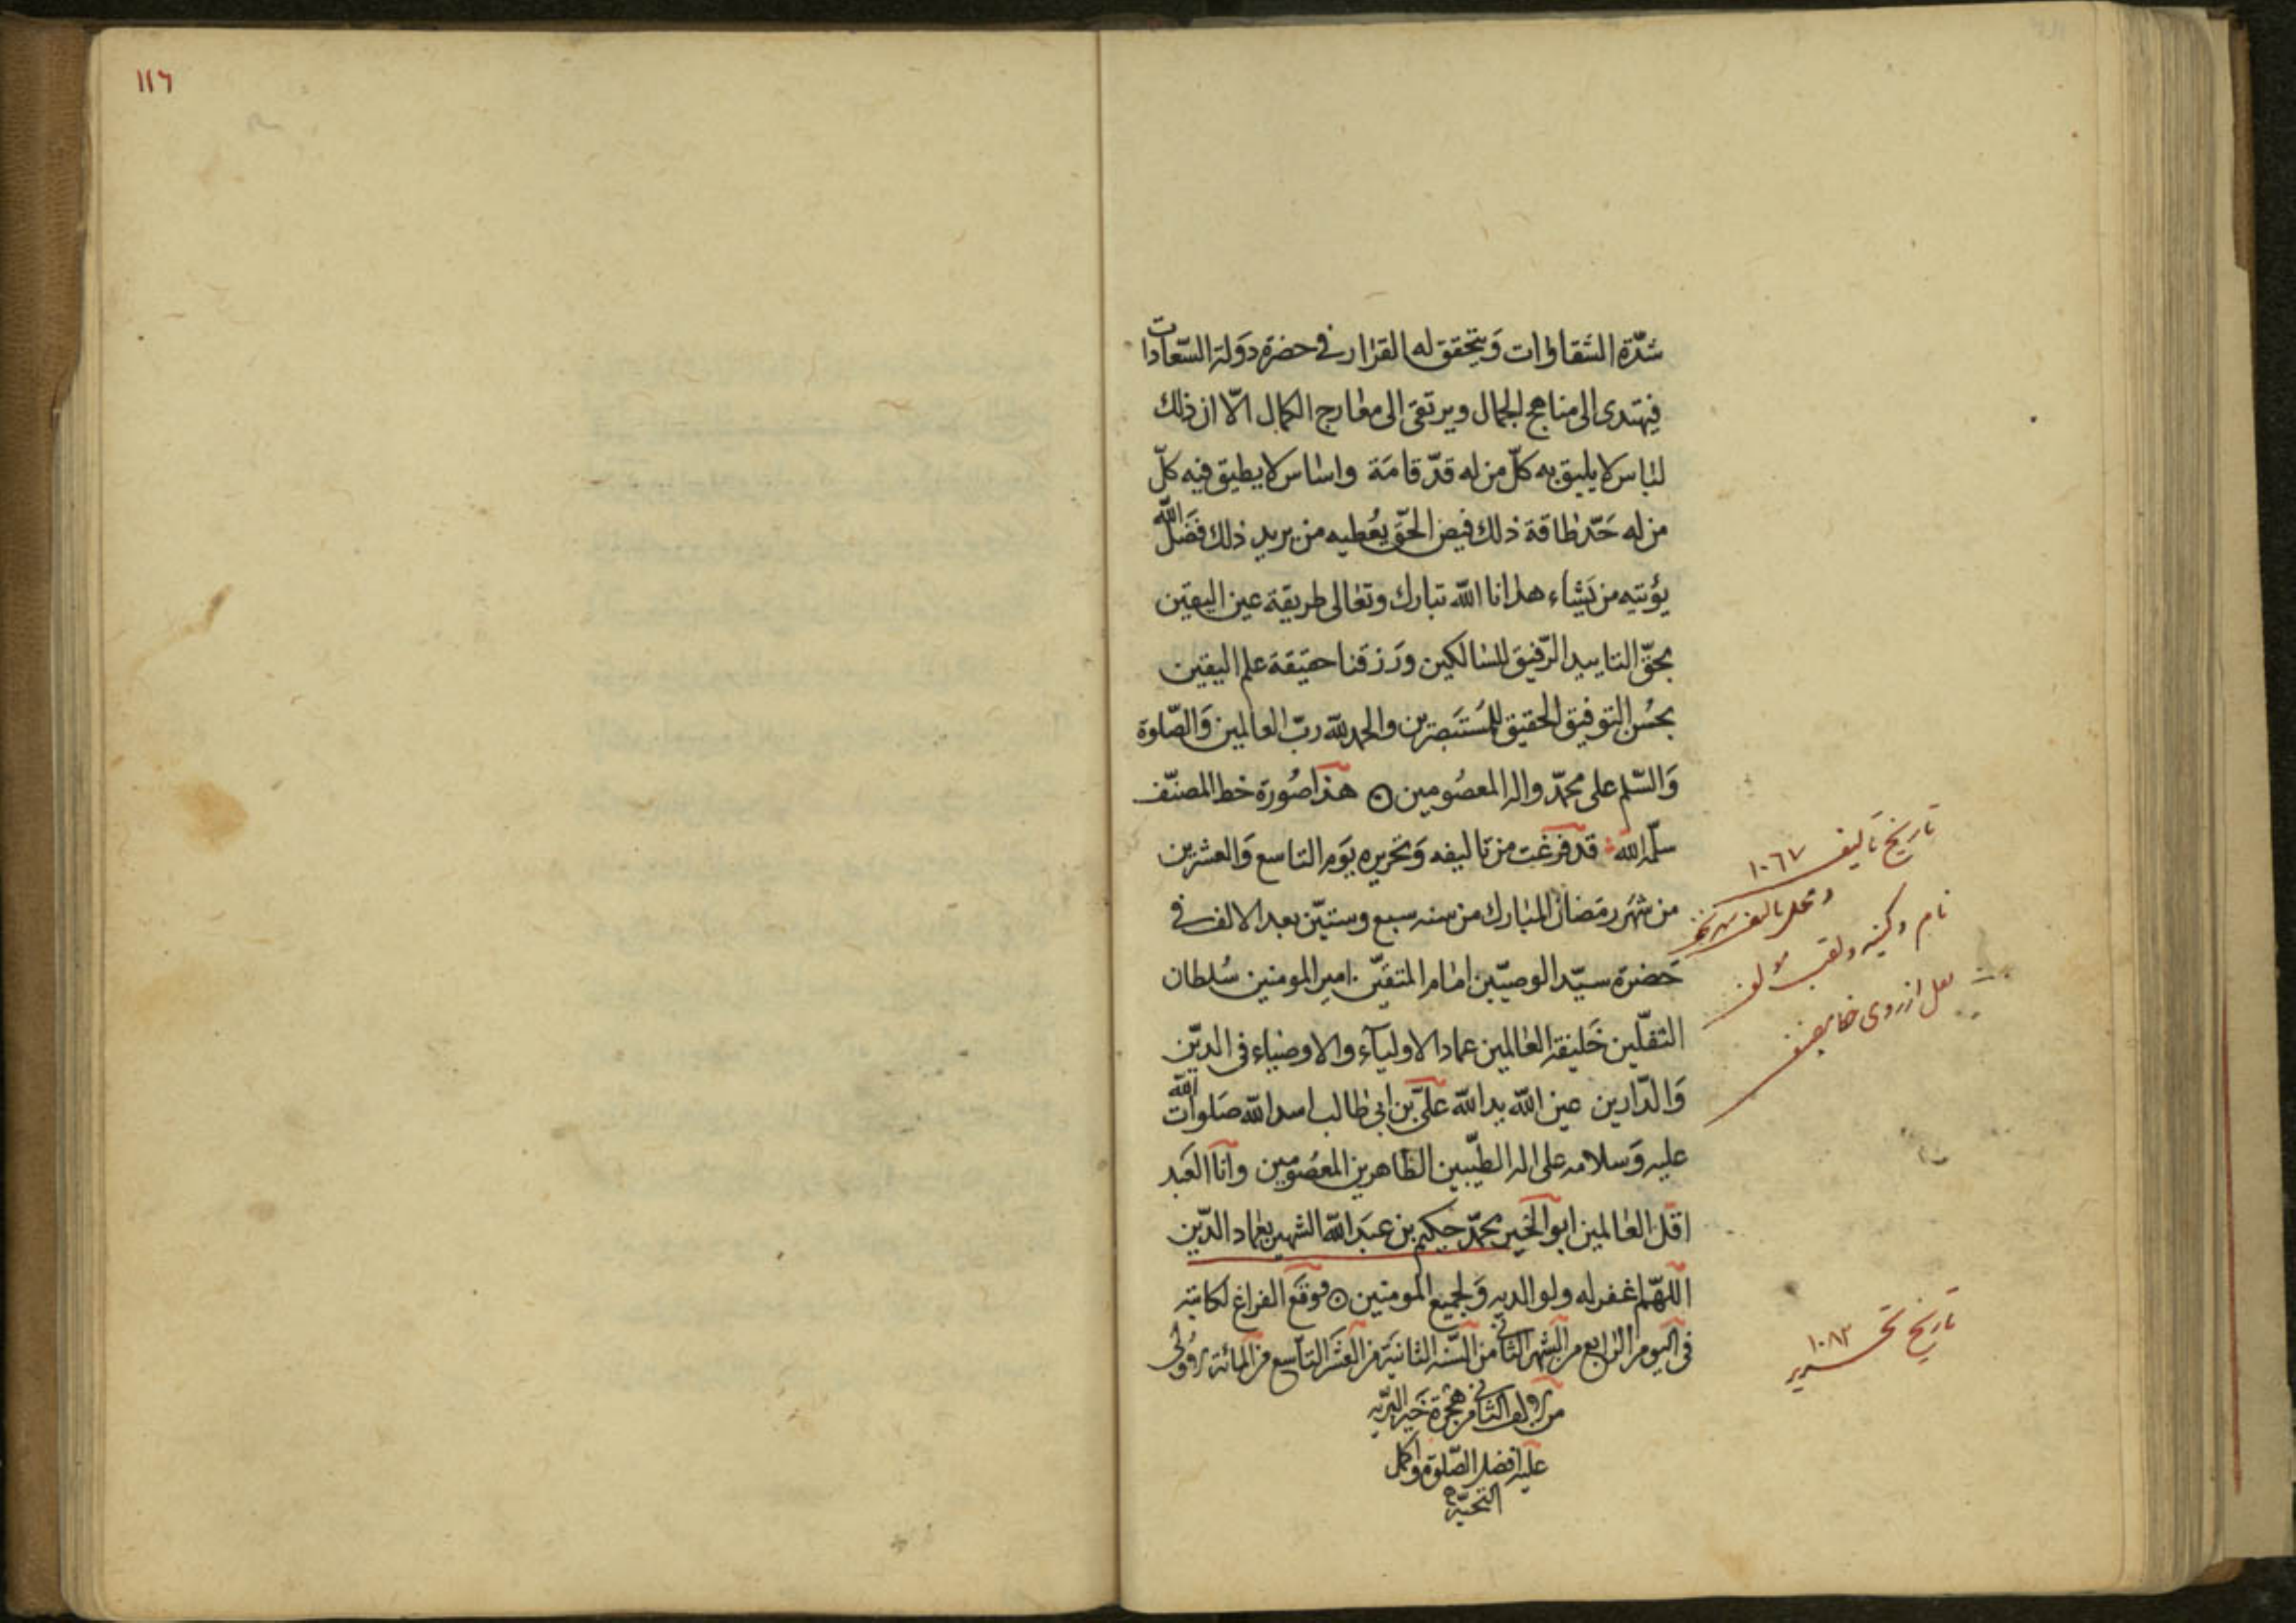 شدّة الشقاوات وَيتحقق له القرار فى حضرة دَولة السّعادات
فيهتدى الى مناهج الجمال ويرتقى الى معارج الكمال الّا ان ذلك
لباس لا يليق به كلّ من له قدّ قامَة واساس لا يطيق فيه كلّ
من له حَدّ طاقة ذلك فيض الحقّ يُعطيه من يريد ذلك فضَل الله
يؤتيه من يَشاء هدانا الله تبارك وتعالى طريقة عين اليقين
بحقّ التاييد الرّفيق للسالكين ورَزقنا حقيقة علم اليقين
بحُسن التوفيق الحقيق للمُستَبصرين والحمد لله ربّ العالمين وَالصّلوة
وَالسّلم على محمّد واله المعصُومين ۝ هذا صُورة خط المصنّف
سلّمه الله قد فرغت من تاليفه وَتحريره يوَم التاسع وَالعشرين
من شهَر رمَضان المبارك من سنه سبع وستيّن بعد الالف فى
حَضرة سيّد الوصيّين امام المتقيّن امير المومنين سُلطان
الثقلّين خَليفة العالمين عماد الاوليآء والاوصياء فى الديّن
وَالدّارين عين الله يد الله علىّ بن ابى طالب اسد الله صَلوات الله
عليه وَسلامه على اله الطيّبين الطاهرين المعصُومين وانا العَبد
اقل العالمين ابو الخير محمّد حكيم بن عبَد الله الشهير بعماد الدّين
اللّهمّ اغفر له ولوالديه وَلجميع المومنين ۝ فوقَع الفراغ لكاتبه
فى اليوم الرابع من الشهر الثانى من السّنه الثانية من العشَر التاسع من المائة الاولى
من الالف الثانى من هجرة خَير البريّه
عليه افضل الصّلوة واكمل
التحيّة
تاريخ تاليف ١٠٦٧
ومحل تاليف
نام وكنيه ولقب مولف
نقل از روى خط مصنف
تاريخ تحرير ١٠٨٢
١١٦